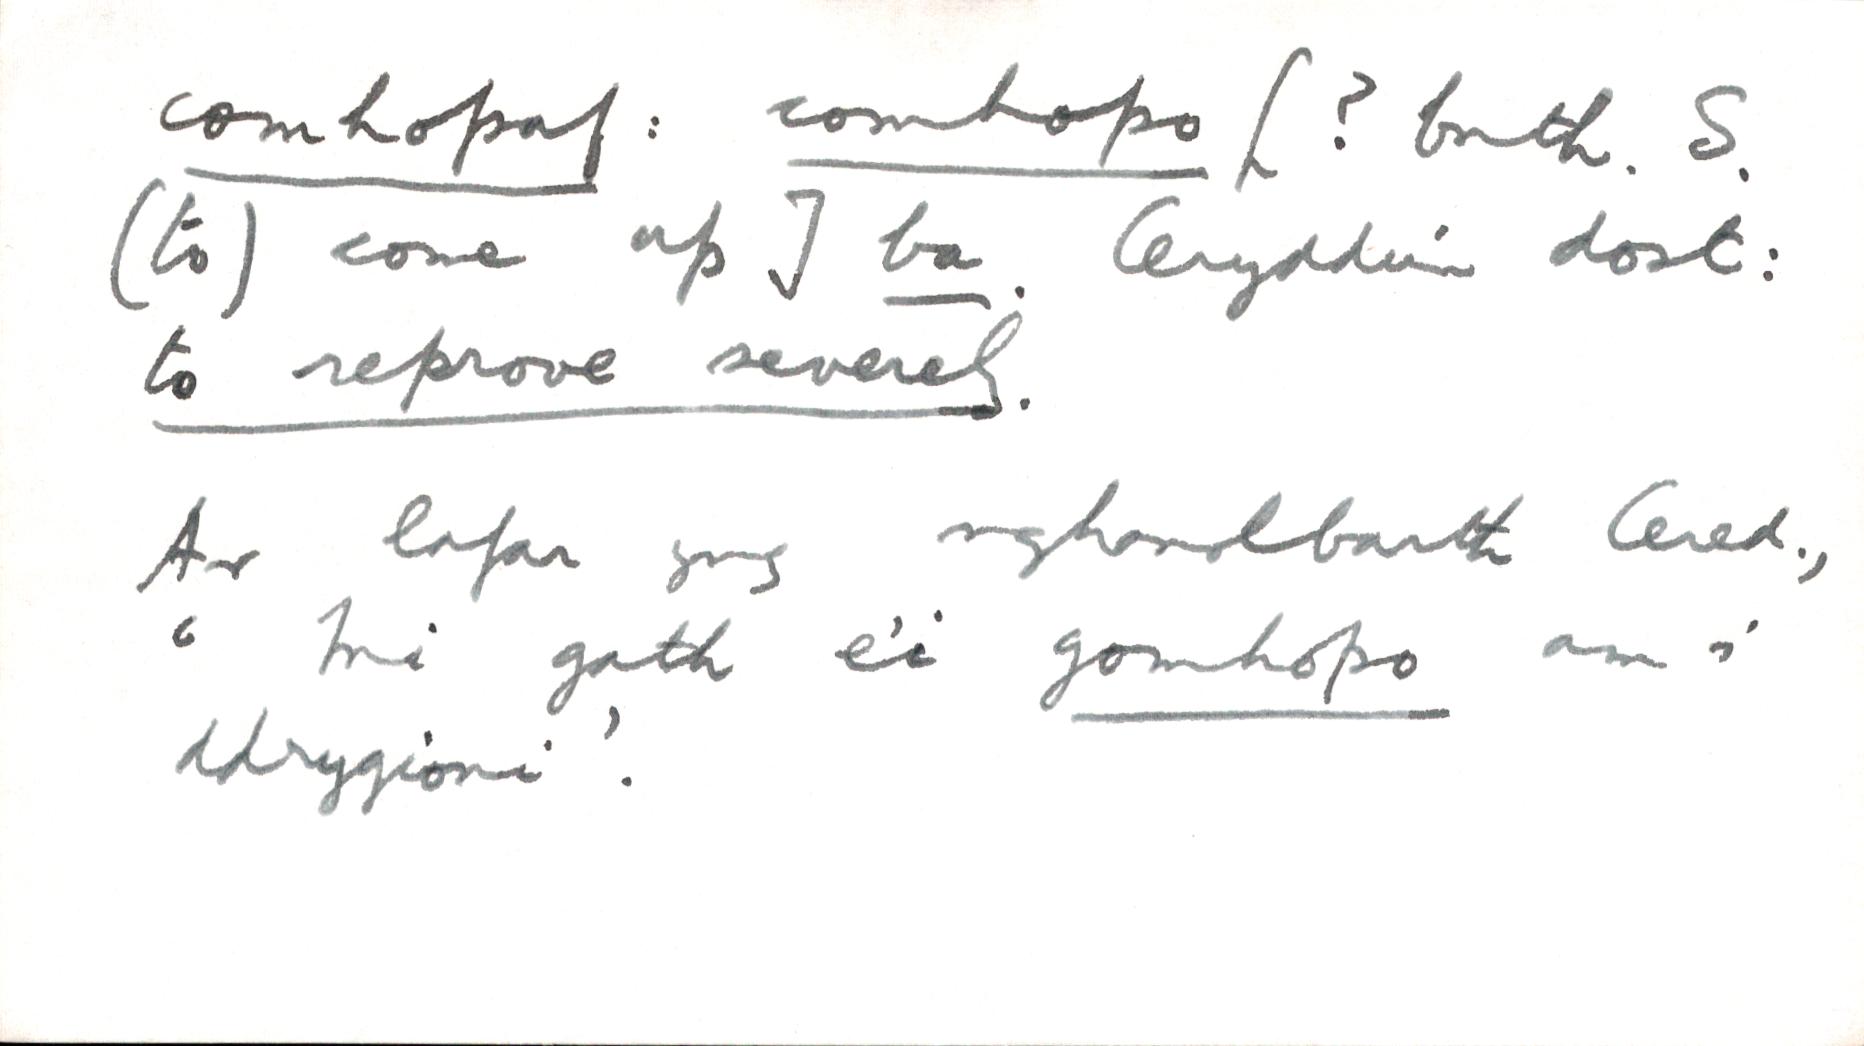 comhopaf: comhopo [? bnth. S.
(to) come up] ba. Ceryddu'n dost:
to reprove severely.
Ar lafar yng nghanolbarth Cered.,
‘Mi gath e'i gomhopo am i
ddrygioni’.